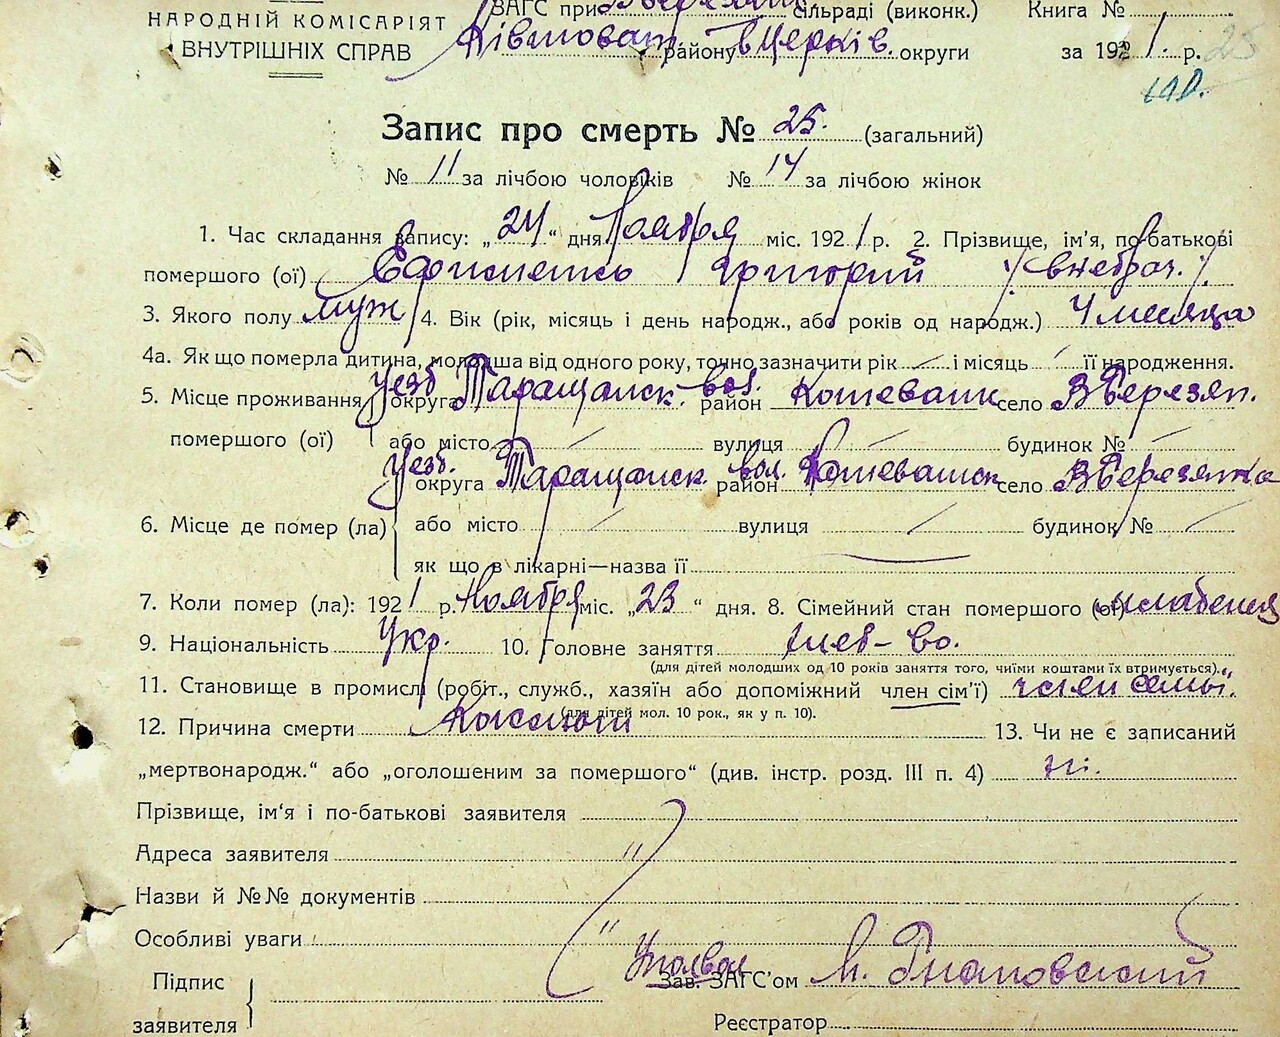 НАРОДНІЙ КОМІСАРІЯТ
ВНУТРІШНІХ СПРАВ
ЗАГС при сільраді (виконк.) Книга №
району вЦерків. округи за 1921 р. 25
Запис про смерть № 25. (загальний)
№ 11 за лічбою чоловіків № 14 за лічбою жінок
1. Час складання запису: „24“ дня Ноября міс. 1921 р. 2. Прізвище, ім’я, по-батькові
помершого (ої) Ефименко Григорий /внебрач./
3. Якого полу муж 4. Вік (рік, місяць і день народж., або років од народж.) 4 месяца
4а. Як що померла дитина, молодша від одного року, точно зазначити рік — і місяць — її народження.
5. Місце проживання Уезд округа Таращанск. вол. район Кошеванск село ВБерезян.
помершого (ої) або місто — вулиця — будинок № —
Уезд. округа Таращанск. вол. район Кошеванск село ВБерезянка
6. Місце де помер (ла) або місто — вулиця — будинок № —
як що в лікарні—назва її
7. Коли помер (ла): 1921 р. Ноября міс. „23“ дня. 8. Сімейний стан помершого (ої) младенец
9. Національність Укр. 10. Головне заняття хлеб-во.
(для дітей молодших од 10 років заняття того, чиїми коштами їх втримується).
11. Становище в промислі (робіт., служб., хазяїн або допоміжний член сім’ї) член семьи.
(для дітей мол. 10 рок., як у п. 10).
12. Причина смерти 13. Чи не є записаний
„мертвонародж.“ або „оголошеним за помершого“ (див. інстр. розд. III п. 4) ні.
Прізвище, ім’я і по-батькові заявителя
Адреса заявителя "
Назви й №№ документів
Особливі уваги "
Підпис
заявителя
Зав. ЗАГС’ом
Реєстратор